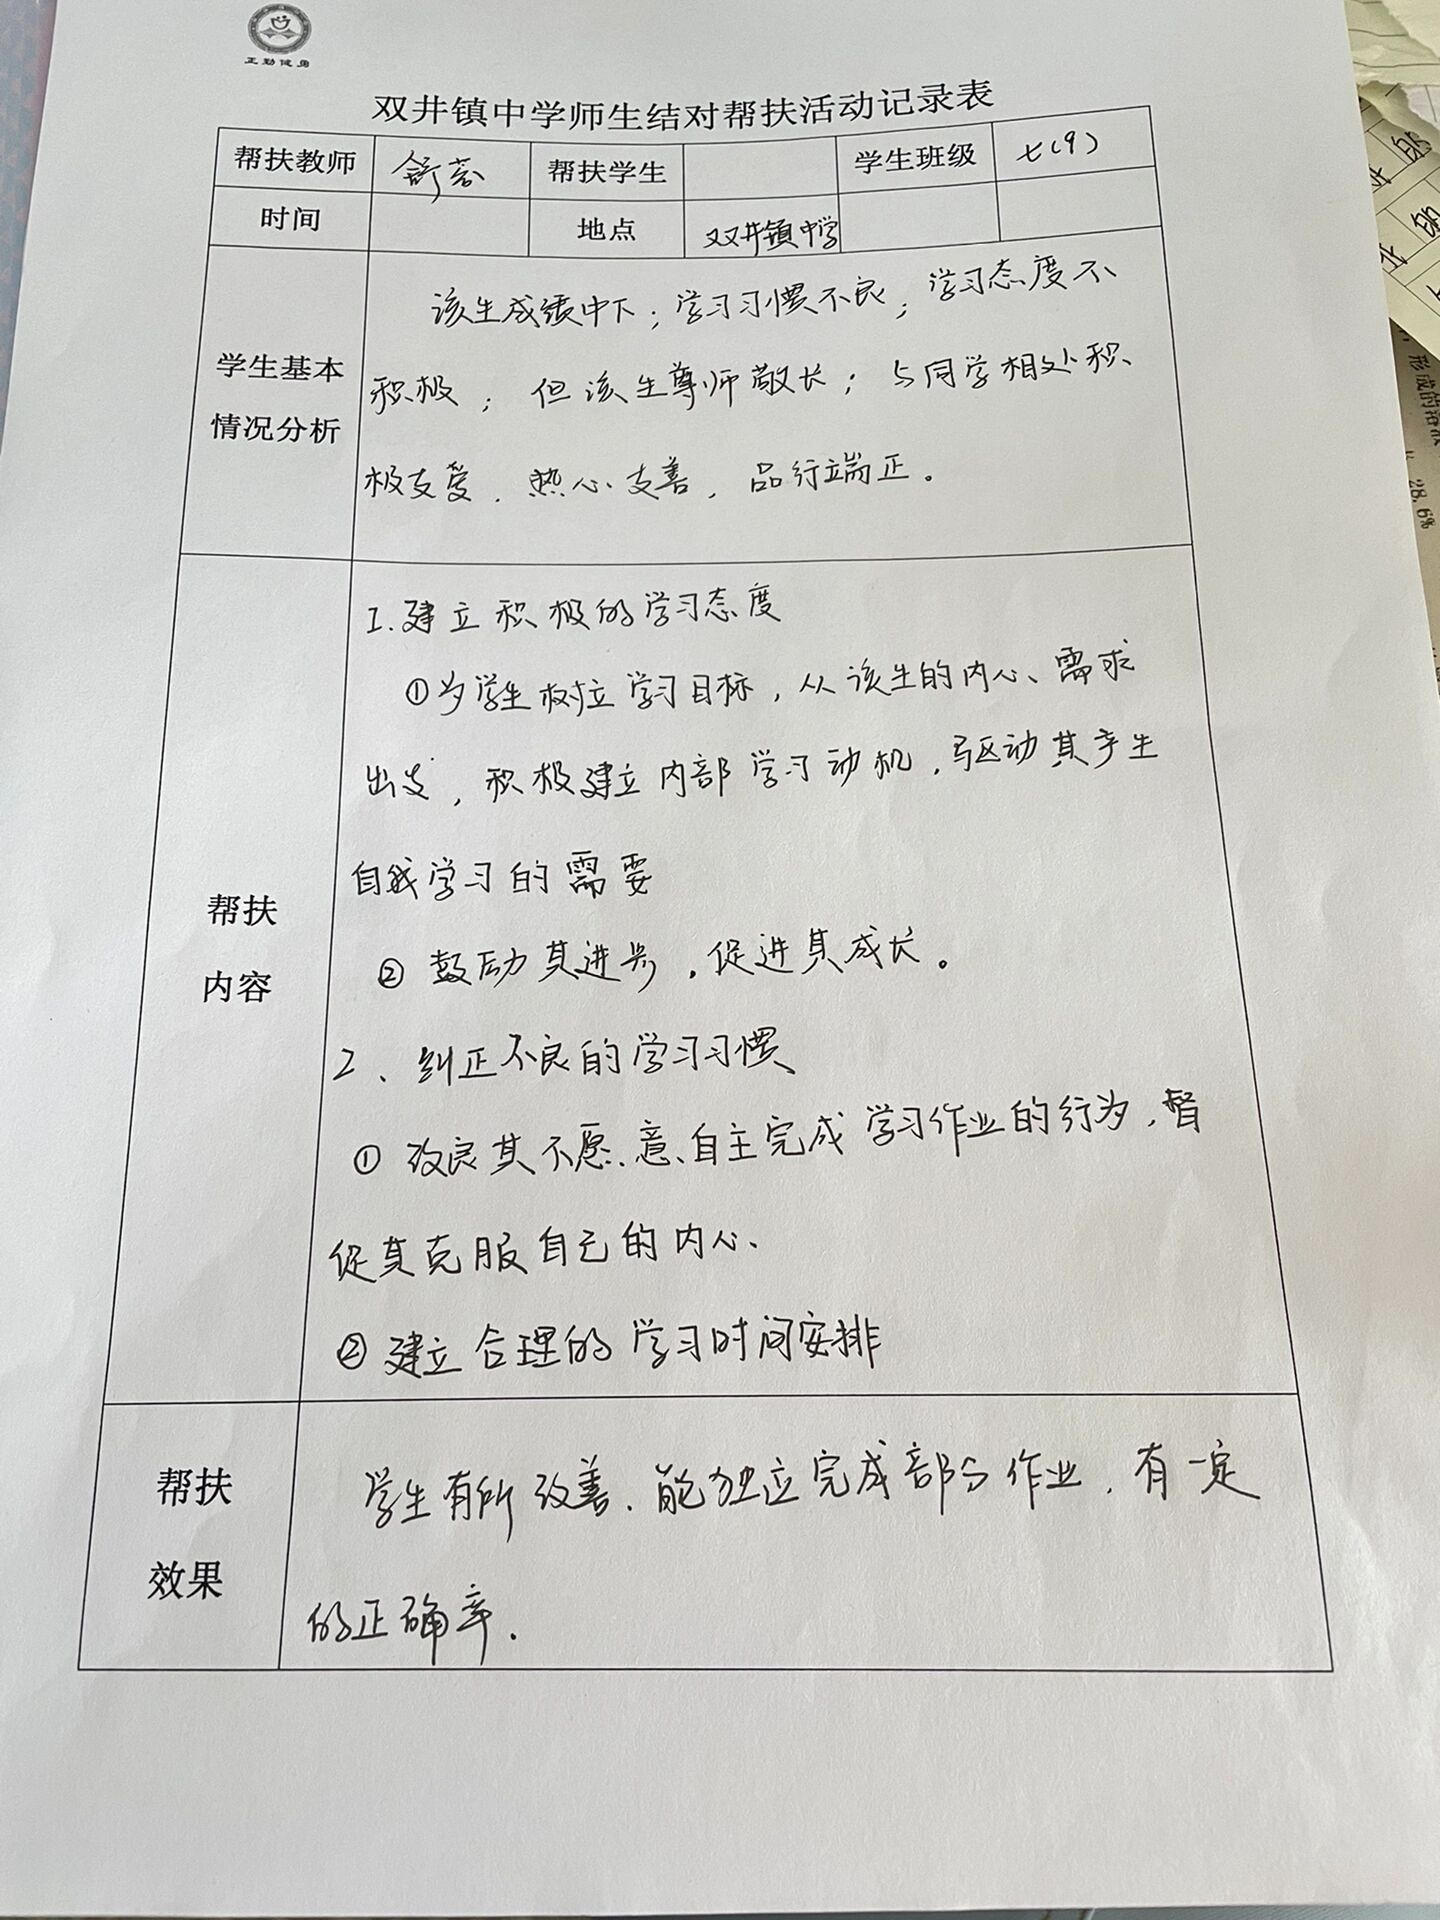 正勤健勇
双井镇中学师生结对帮扶活动记录表
帮扶教师 舒 帮扶学生 学生班级 七(9)
时间 地点 双井镇中学
学生基本
情况分析
该生成绩中下；学习习惯不良；学习态度不
积极；但该生尊师敬长；与同学相处积
极友爱，热心友善，品行端正。
帮扶
内容
1.建立积极的学习态度
①为学生树立学习目标，从该生的内心、需求
出发，积极建立内部学习动机，驱动其产生
自我学习的需要
②鼓励其进步，促进其成长。
2、纠正不良的学习习惯
①改良其不愿意自主完成学习作业的行为，督
促其克服自己的内心、
②建立合理的学习时间安排
帮扶
效果
学生有所改善，能独立完成部分作业，有一定
的正确率.
形成的溶液
28.6%